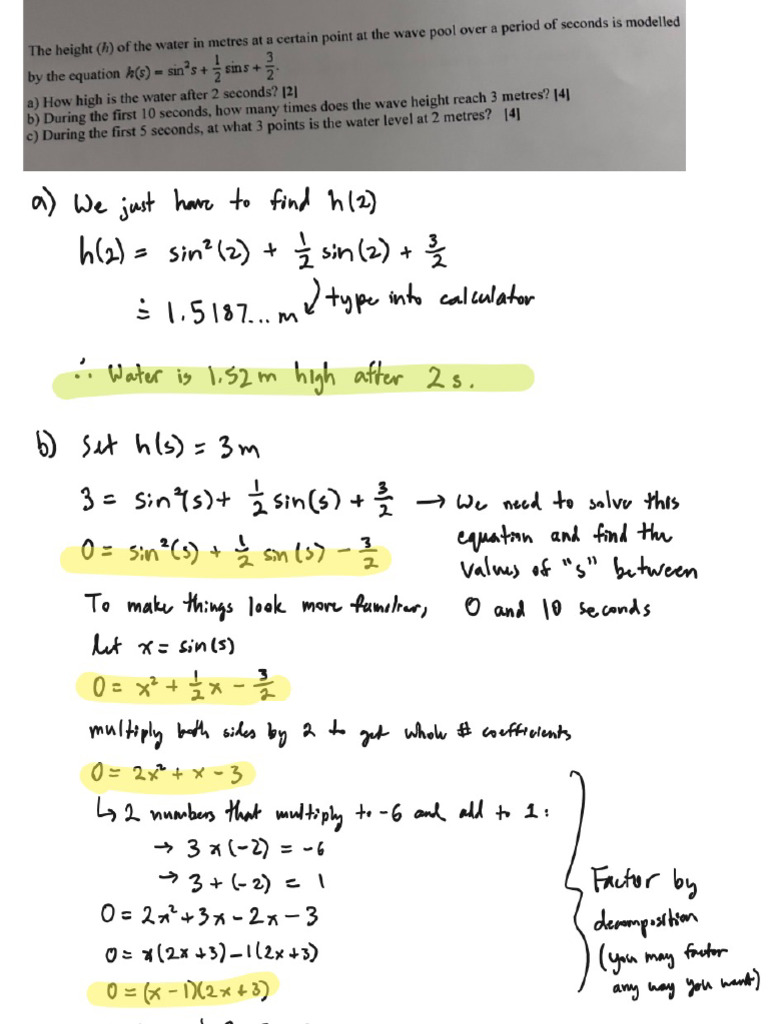 The height (h) of the water in metres at a certain point at the wave pool over a period of seconds is modelled
by the equation h(s) = sin²s + 1/2 sins + 3/2.
a) How high is the water after 2 seconds? [2]
b) During the first 10 seconds, how many times does the wave height reach 3 metres? [4]
c) During the first 5 seconds, at what 3 points is the water level at 2 metres? [4]
a) We just have to find h(2)
h(2) = sin²(2) + 1/2 sin(2) + 3/2
≐ 1.5187... m
type into calculator
∴ Water is 1.52 m high after 2 s.
b) Set h(s) = 3 m
3 = sin²(s) + 1/2 sin(s) + 3/2 → We need to solve this
equation and find the
values of "s" between
0 and 10 seconds
0 = sin²(s) + 1/2 sin(s) - 3/2
To make things look more familiar,
let x = sin(s)
0 = x² + 1/2 x - 3/2
multiply both sides by 2 to get whole # coefficients
0 = 2x² + x - 3
↳ 2 numbers that multiply to -6 and add to 1:
→ 3 x (-2) = -6
→ 3 + (-2) = 1
0 = 2x² + 3x - 2x - 3
0 = x(2x + 3) - 1(2x + 3)
0 = (x - 1)(2x + 3)
Factor by
decomposition
(you may factor
any way you want)